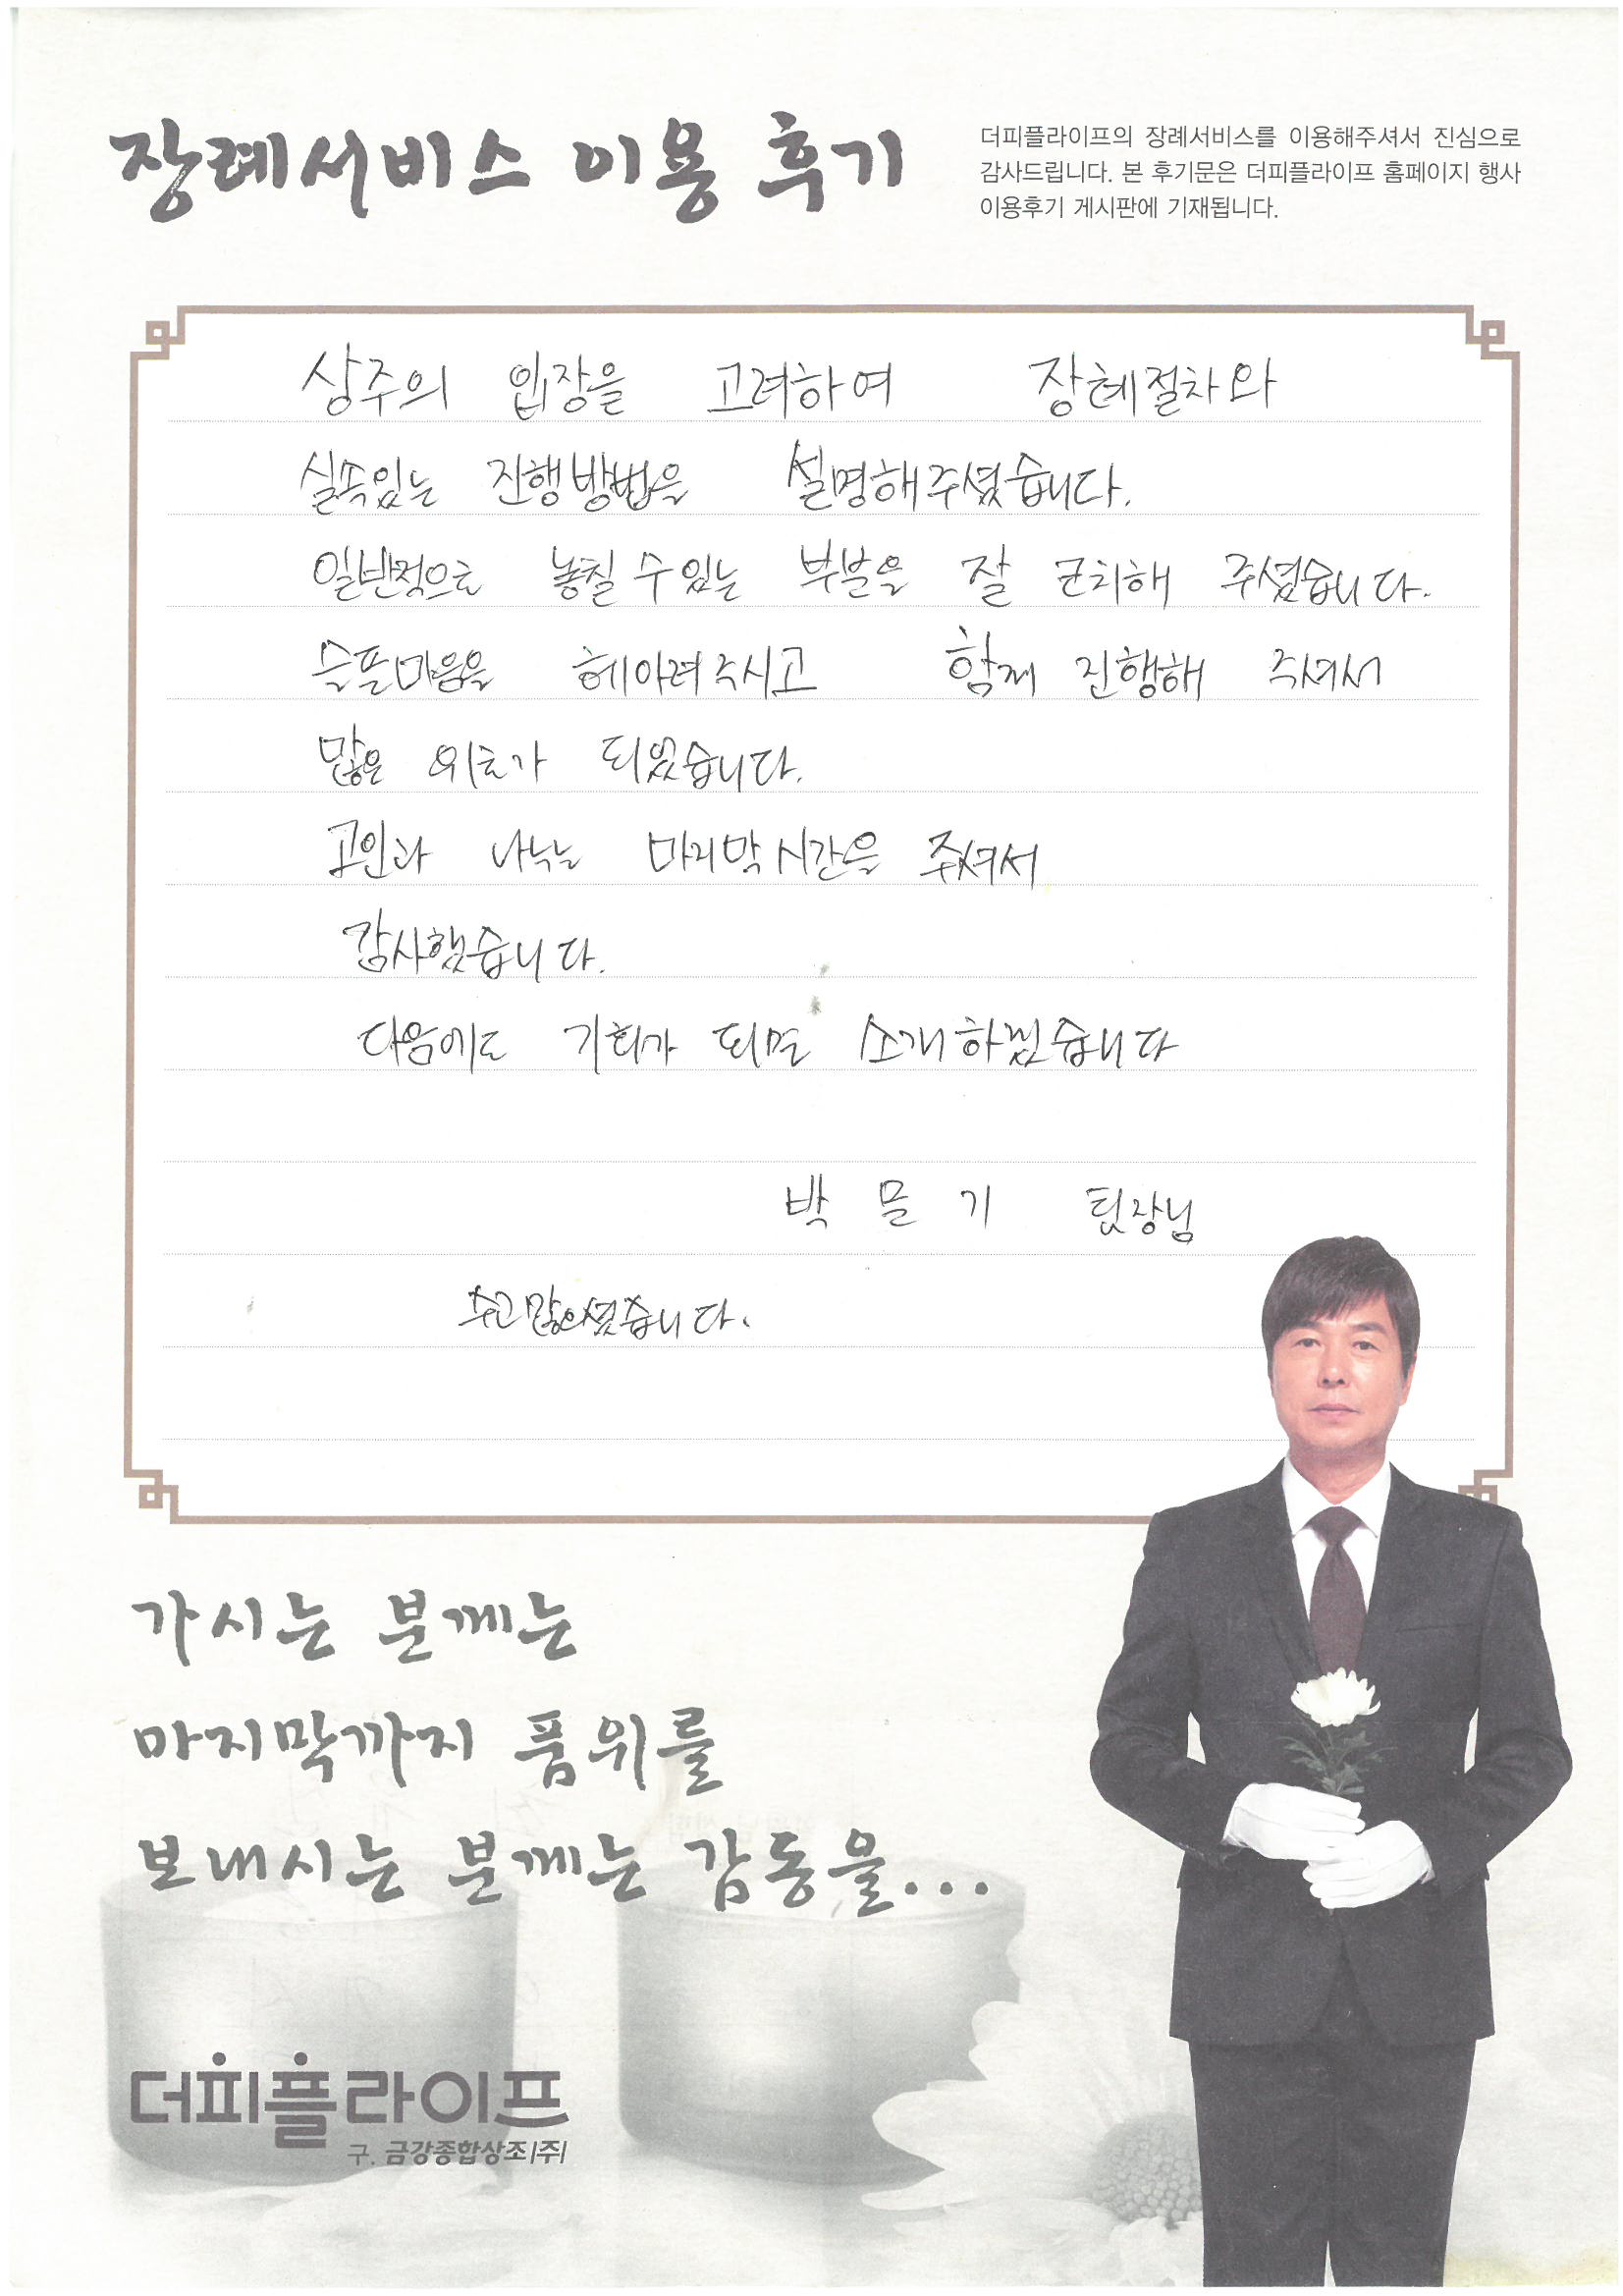 장례서비스 이용 후기
더피플라이프의 장례서비스를 이용해주셔서 진심으로
감사드립니다. 본 후기문은 더피플라이프 홈페이지 행사
이용후기 게시판에 기재됩니다.
상주의 입장을 고려하여 장혜절차와
실속있는 진행방법을 설명해주셨습니다.
일반적으로 놓칠 수 있는 부분을 잘 코치해 주셨습니다.
슬픈마음을 헤아려주시고 함께 진행해 주셔서
많은 위로가 되었습니다.
고인과 나누는 마지막 시간을 주셔서
감사했습니다.
다음에도 기회가 되면 소개하겠습니다
박 기 팀장님
수고많으셨습니다.
가시는 분께는
마지막까지 품위를
보내시는 분께는 감동을...
더피플라이프
구. 금강종합상조(주)